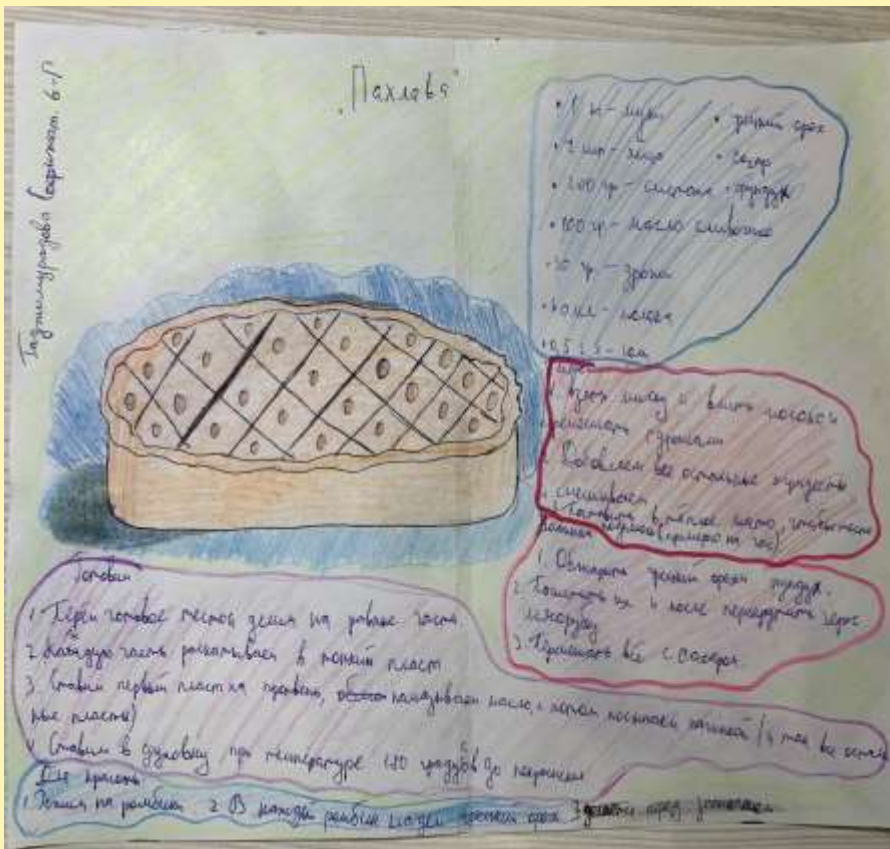 "Пахлава"
Тазитмуразова 6-Г
• 1 кг - муки • грецкий орех
• 2 шт - яйцо • сахар
• 200 гр - сметана • фундук
• 100 гр - масло сливочное
гр -
мл - молока
миску и влить молоко и
перемешать
Добавляем все остальные
смешиваем
в тёплое место, чтобы тесто
(примерно на час)
1. Обжарить грецкий орех и фундук.
2. их и после перекрутить через
мясорубку
3. Перемешать всё с сахаром
Готовим
1. готовое тесто делим на равные части
2. Каждую часть раскатываем в тонкий пласт
3. Ставим первый пласт на противень, намазываем масло, потом посыпаем начинкой (и так все осталь
ные пласты)
4. Ставим в духовку при температуре 180 градусов до
Для красоты
1. Делим на ромбики 2. В каждый ромбик кладём грецкий орех 3.